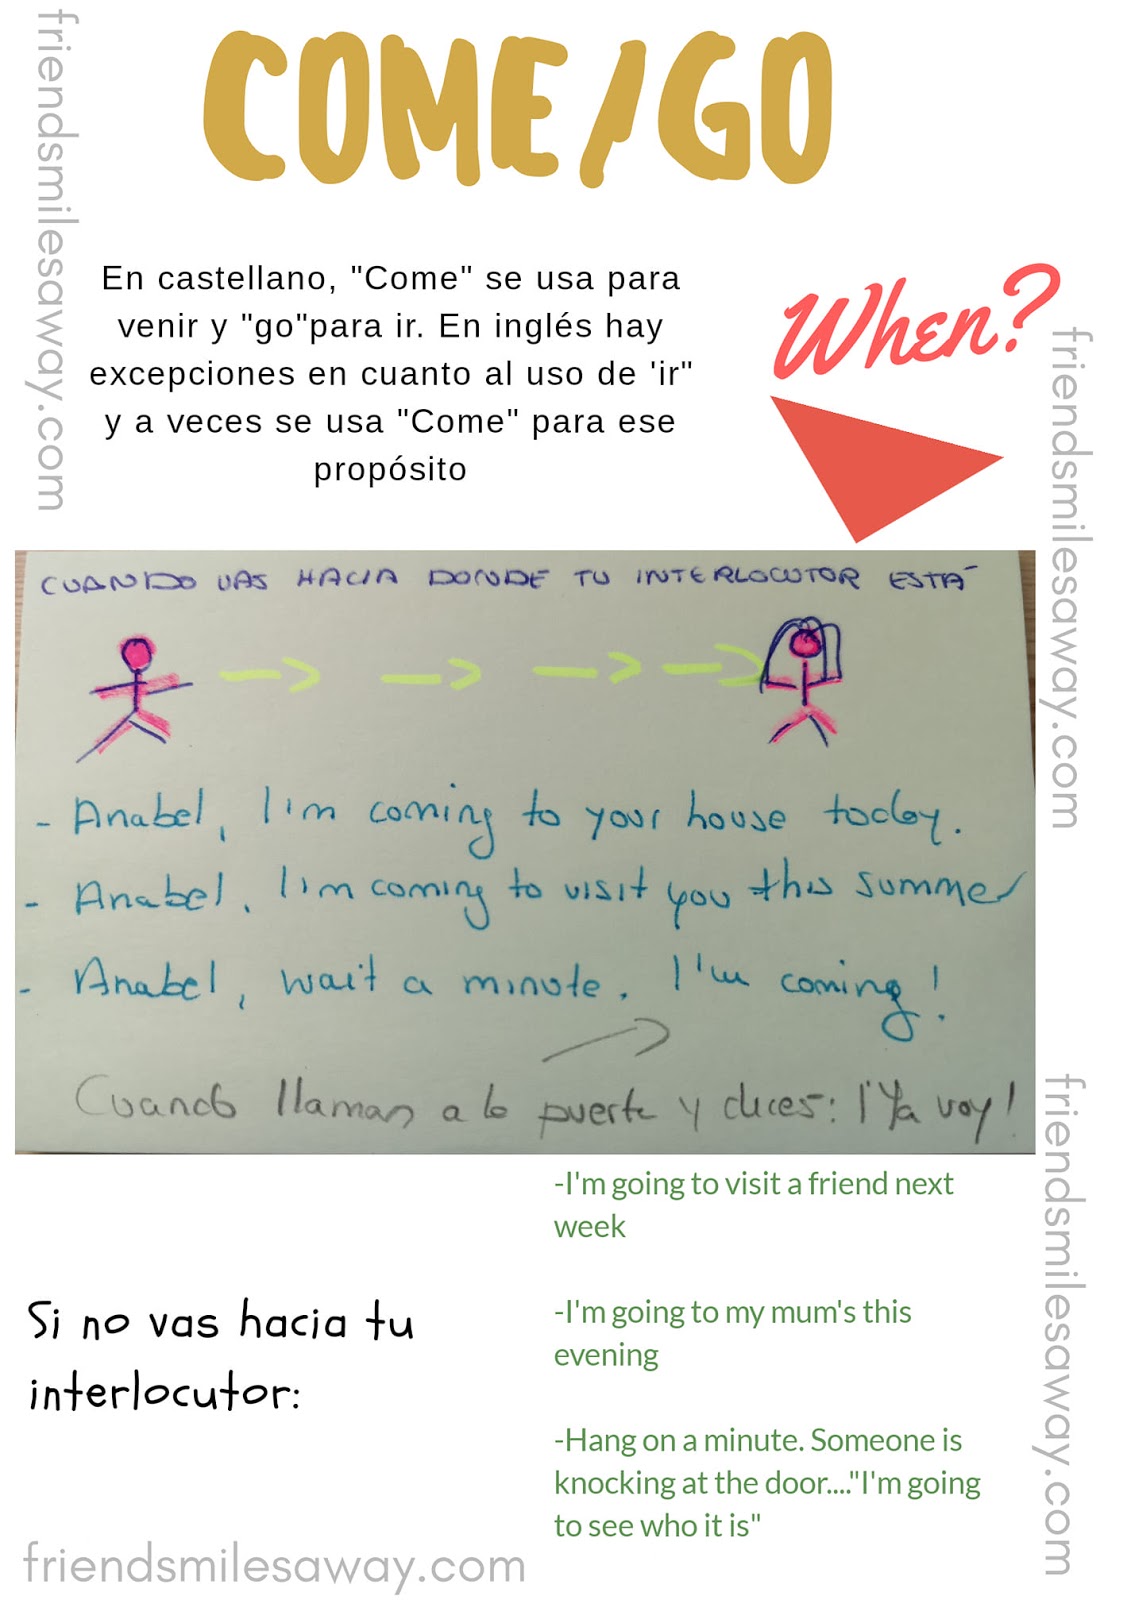 COME/GO
En castellano, "Come" se usa para
venir y "go"para ir. En inglés hay
excepciones en cuanto al uso de 'ir"
y a veces se usa "Come" para ese
propósito
When?
CUANDO VAS HACIA DONDE TU INTERLOCUTOR ESTÁ
- Anabel, I'm coming to your house today.
- Anabel, I'm coming to visit you this summer
- Anabel, wait a minute. I'm coming!
Cuando llaman a la puerta y dices: ¡Ya voy!
Si no vas hacia tu
interlocutor:
-I'm going to visit a friend next
week
-I'm going to my mum's this
evening
-Hang on a minute. Someone is
knocking at the door...."I'm going
to see who it is"
friendsmilesaway.com
friendsmilesaway.com
friendsmilesaway.com
friendsmilesaway.com